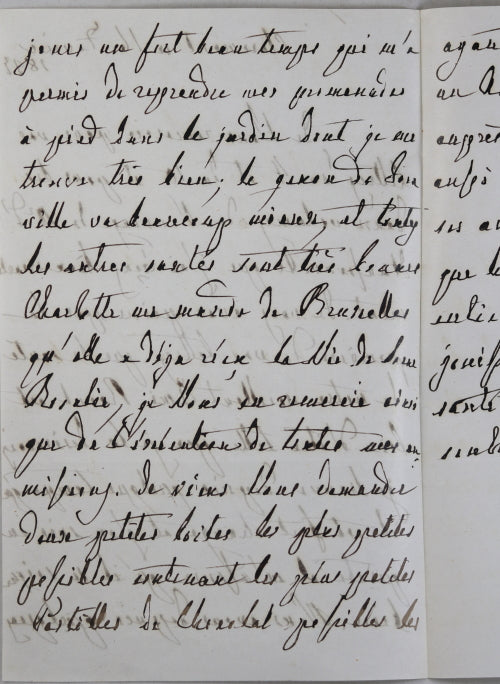 jours un fort beau temps qui m'a
permis de reprendre mes promenades
à pied dans le jardin dont je me
trouve très bien; le genou de
ville va beaucoup mieux, et toutes
les autres santés sont très bonnes
Charlotte me mande de Bruxelles
qu'elle a déja réçu la Vie de Sœur
Rosalie, je Vous en remercie ainsi
que de l'éxécution de toutes mes com
missions. Je viens Vous demander
douze petites boites les plus petites
possibles contenant les plus petites
Pastilles de Chocolat possibles les
ayan
un
auprès
aussi
ses a
que l
entie
jouiss
santé